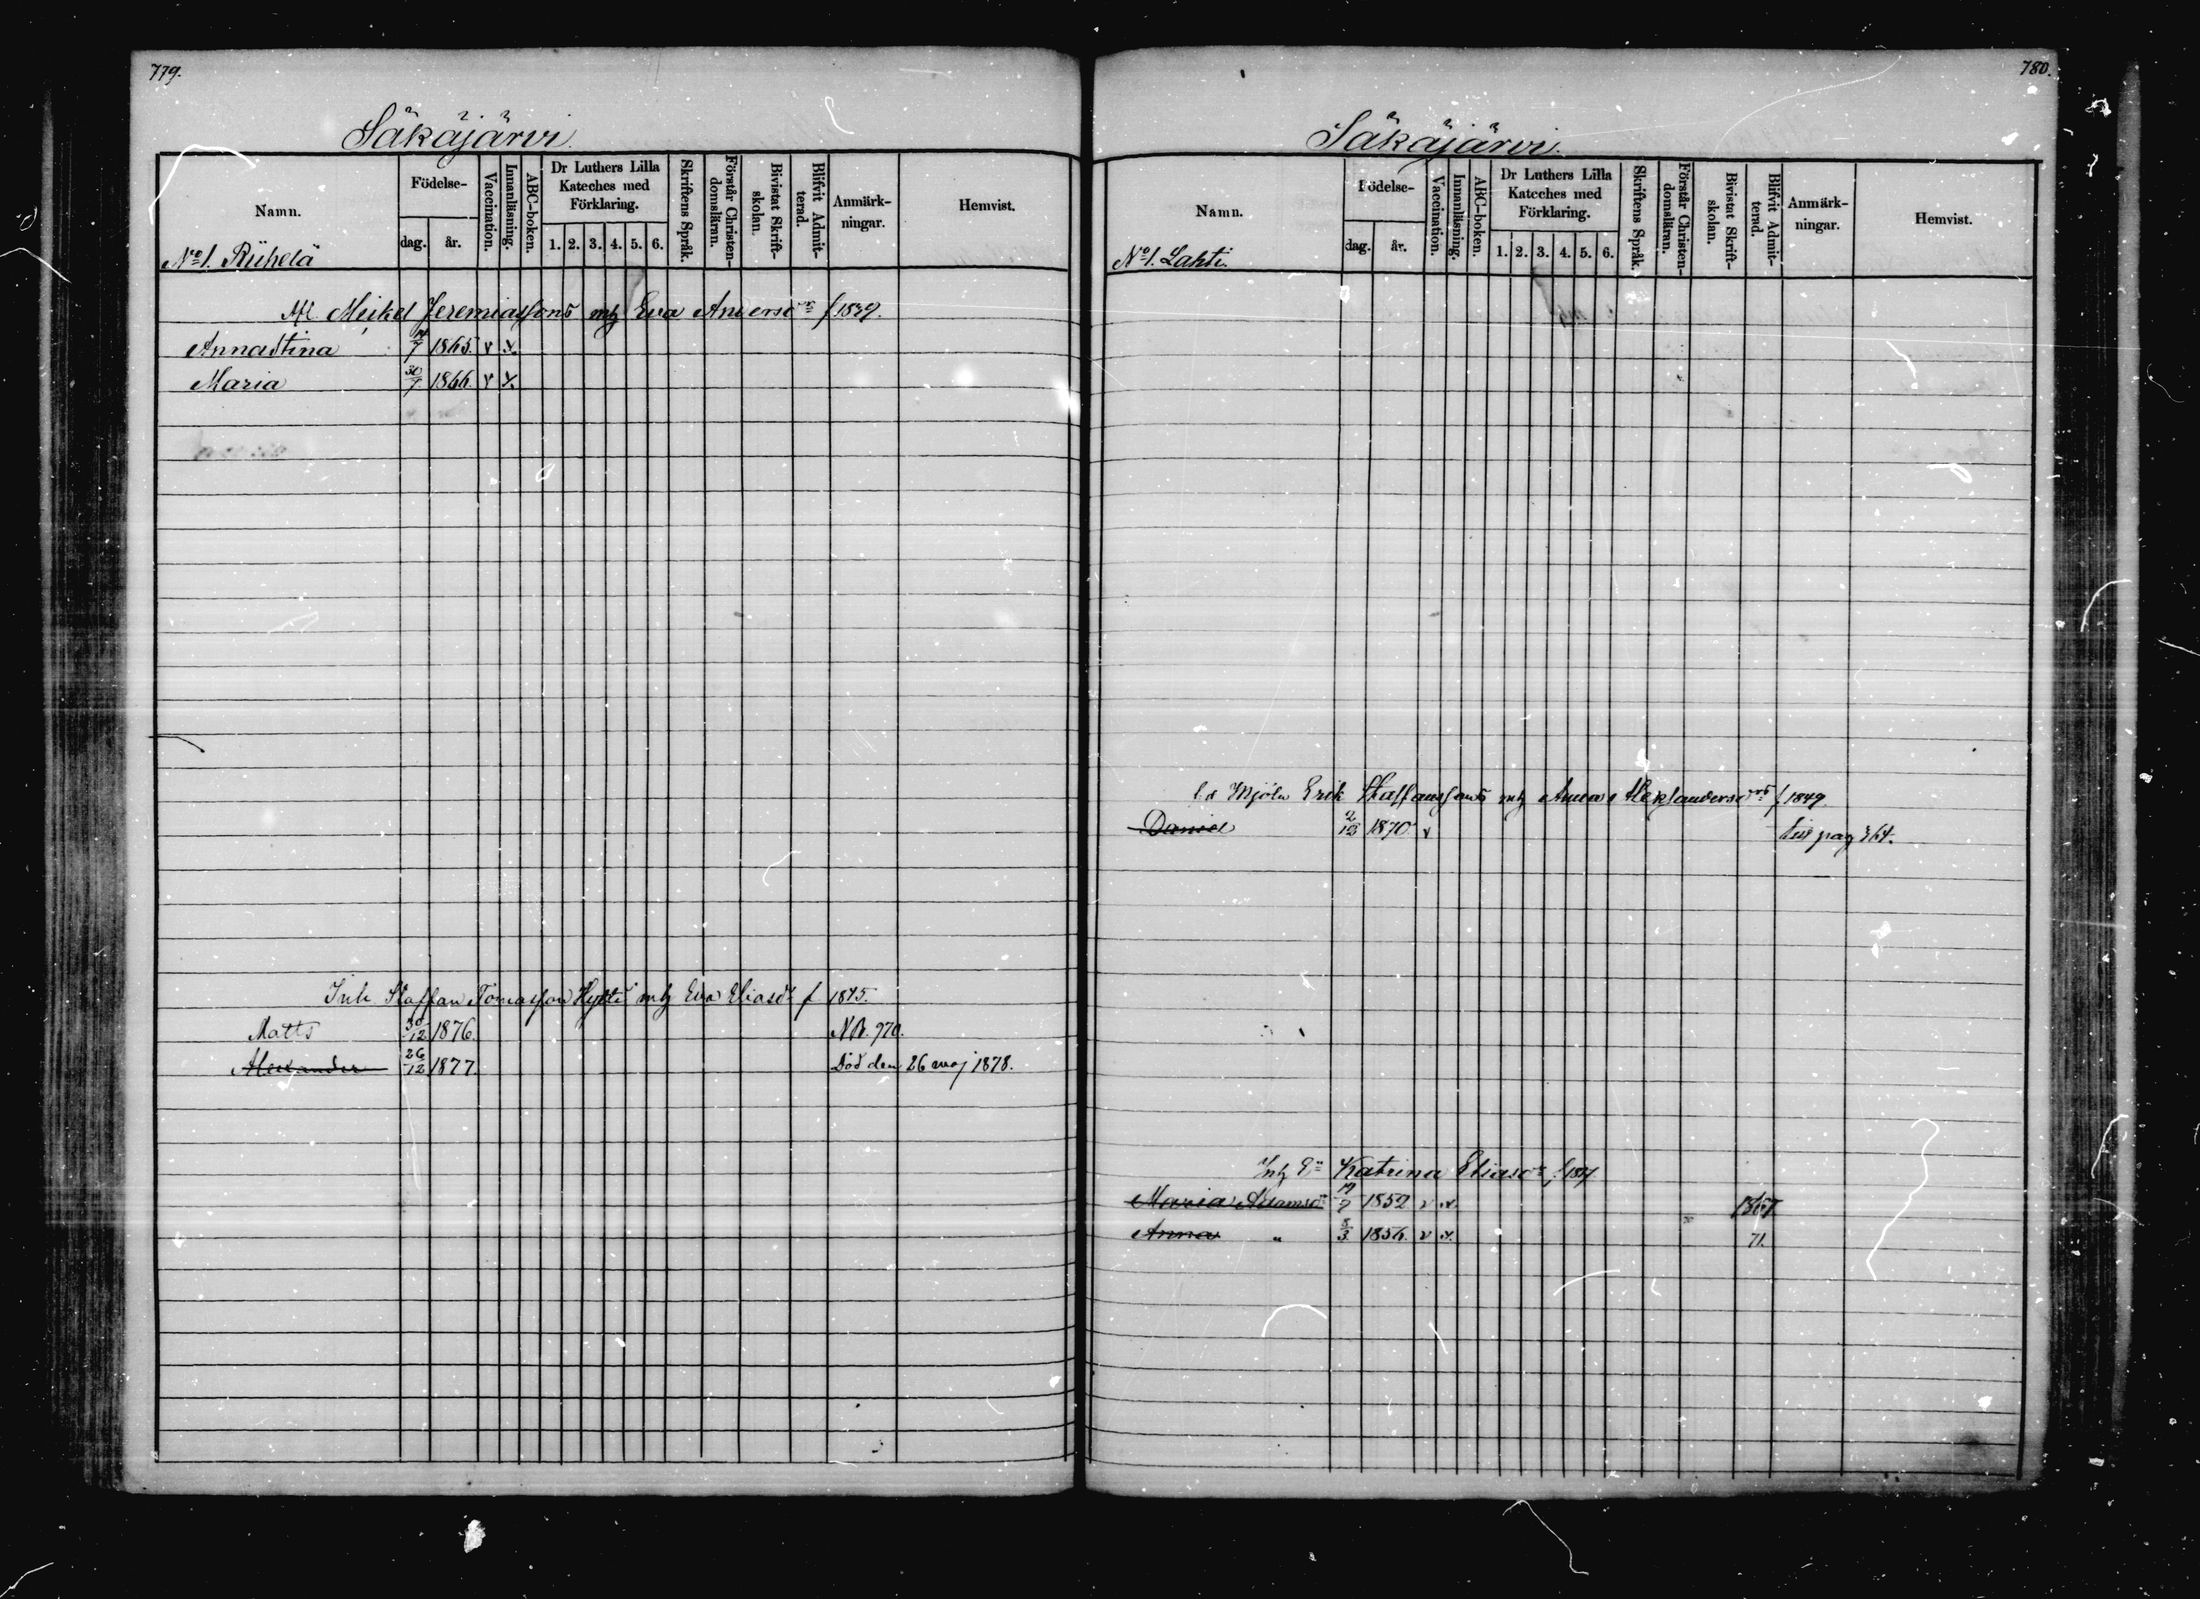 779.
Säkäjärvi.
Namn.
Födelse-
dag. år.
Vaccination.
Innanläsning.
ABC-boken.
Dr Luthers Lilla
Kateches med
Förklaring.
1. 2. 3. 4. 5. 6.
Skriftens Språk.
Förstår Christen-
domsläran.
Bivistat Skrift-
skolan.
Blifvit Admit-
terad.
Anmärk-
ningar.
Hemvist.
No 1. Riihelä
Mickel Jeremiassons Eva Andersd f 1839.
Anna Stina 7 1865. v x.
Maria 30/7 1866. v x.
Inh Staffan Tomasson Hytti Eva Eliasd f 1845.
Matts 30/12 1876. NB. 970.
Alexander 26/12 1877. Död den 26 maj 1878.
780.
Säkäjärvi.
Namn.
Födelse-
dag. år.
Vaccination.
Innanläsning.
ABC-boken.
Dr Luthers Lilla
Kateches med
Förklaring.
1. 2. 3. 4. 5. 6.
Skriftens Språk.
Förstår Christen-
domsläran.
Bivistat Skrift-
skolan.
Blifvit Admit-
terad.
Anmärk-
ningar.
Hemvist.
No 1. Lahti.
Erik Staffanssons Anna Alexandersd f 1849.
Daniel 2/12 1870 v pag 364.
Katrina Eliasd
Maria Adamsd 7 1852 v x. 1867
Anna " 8/3 1856. v x. 71.